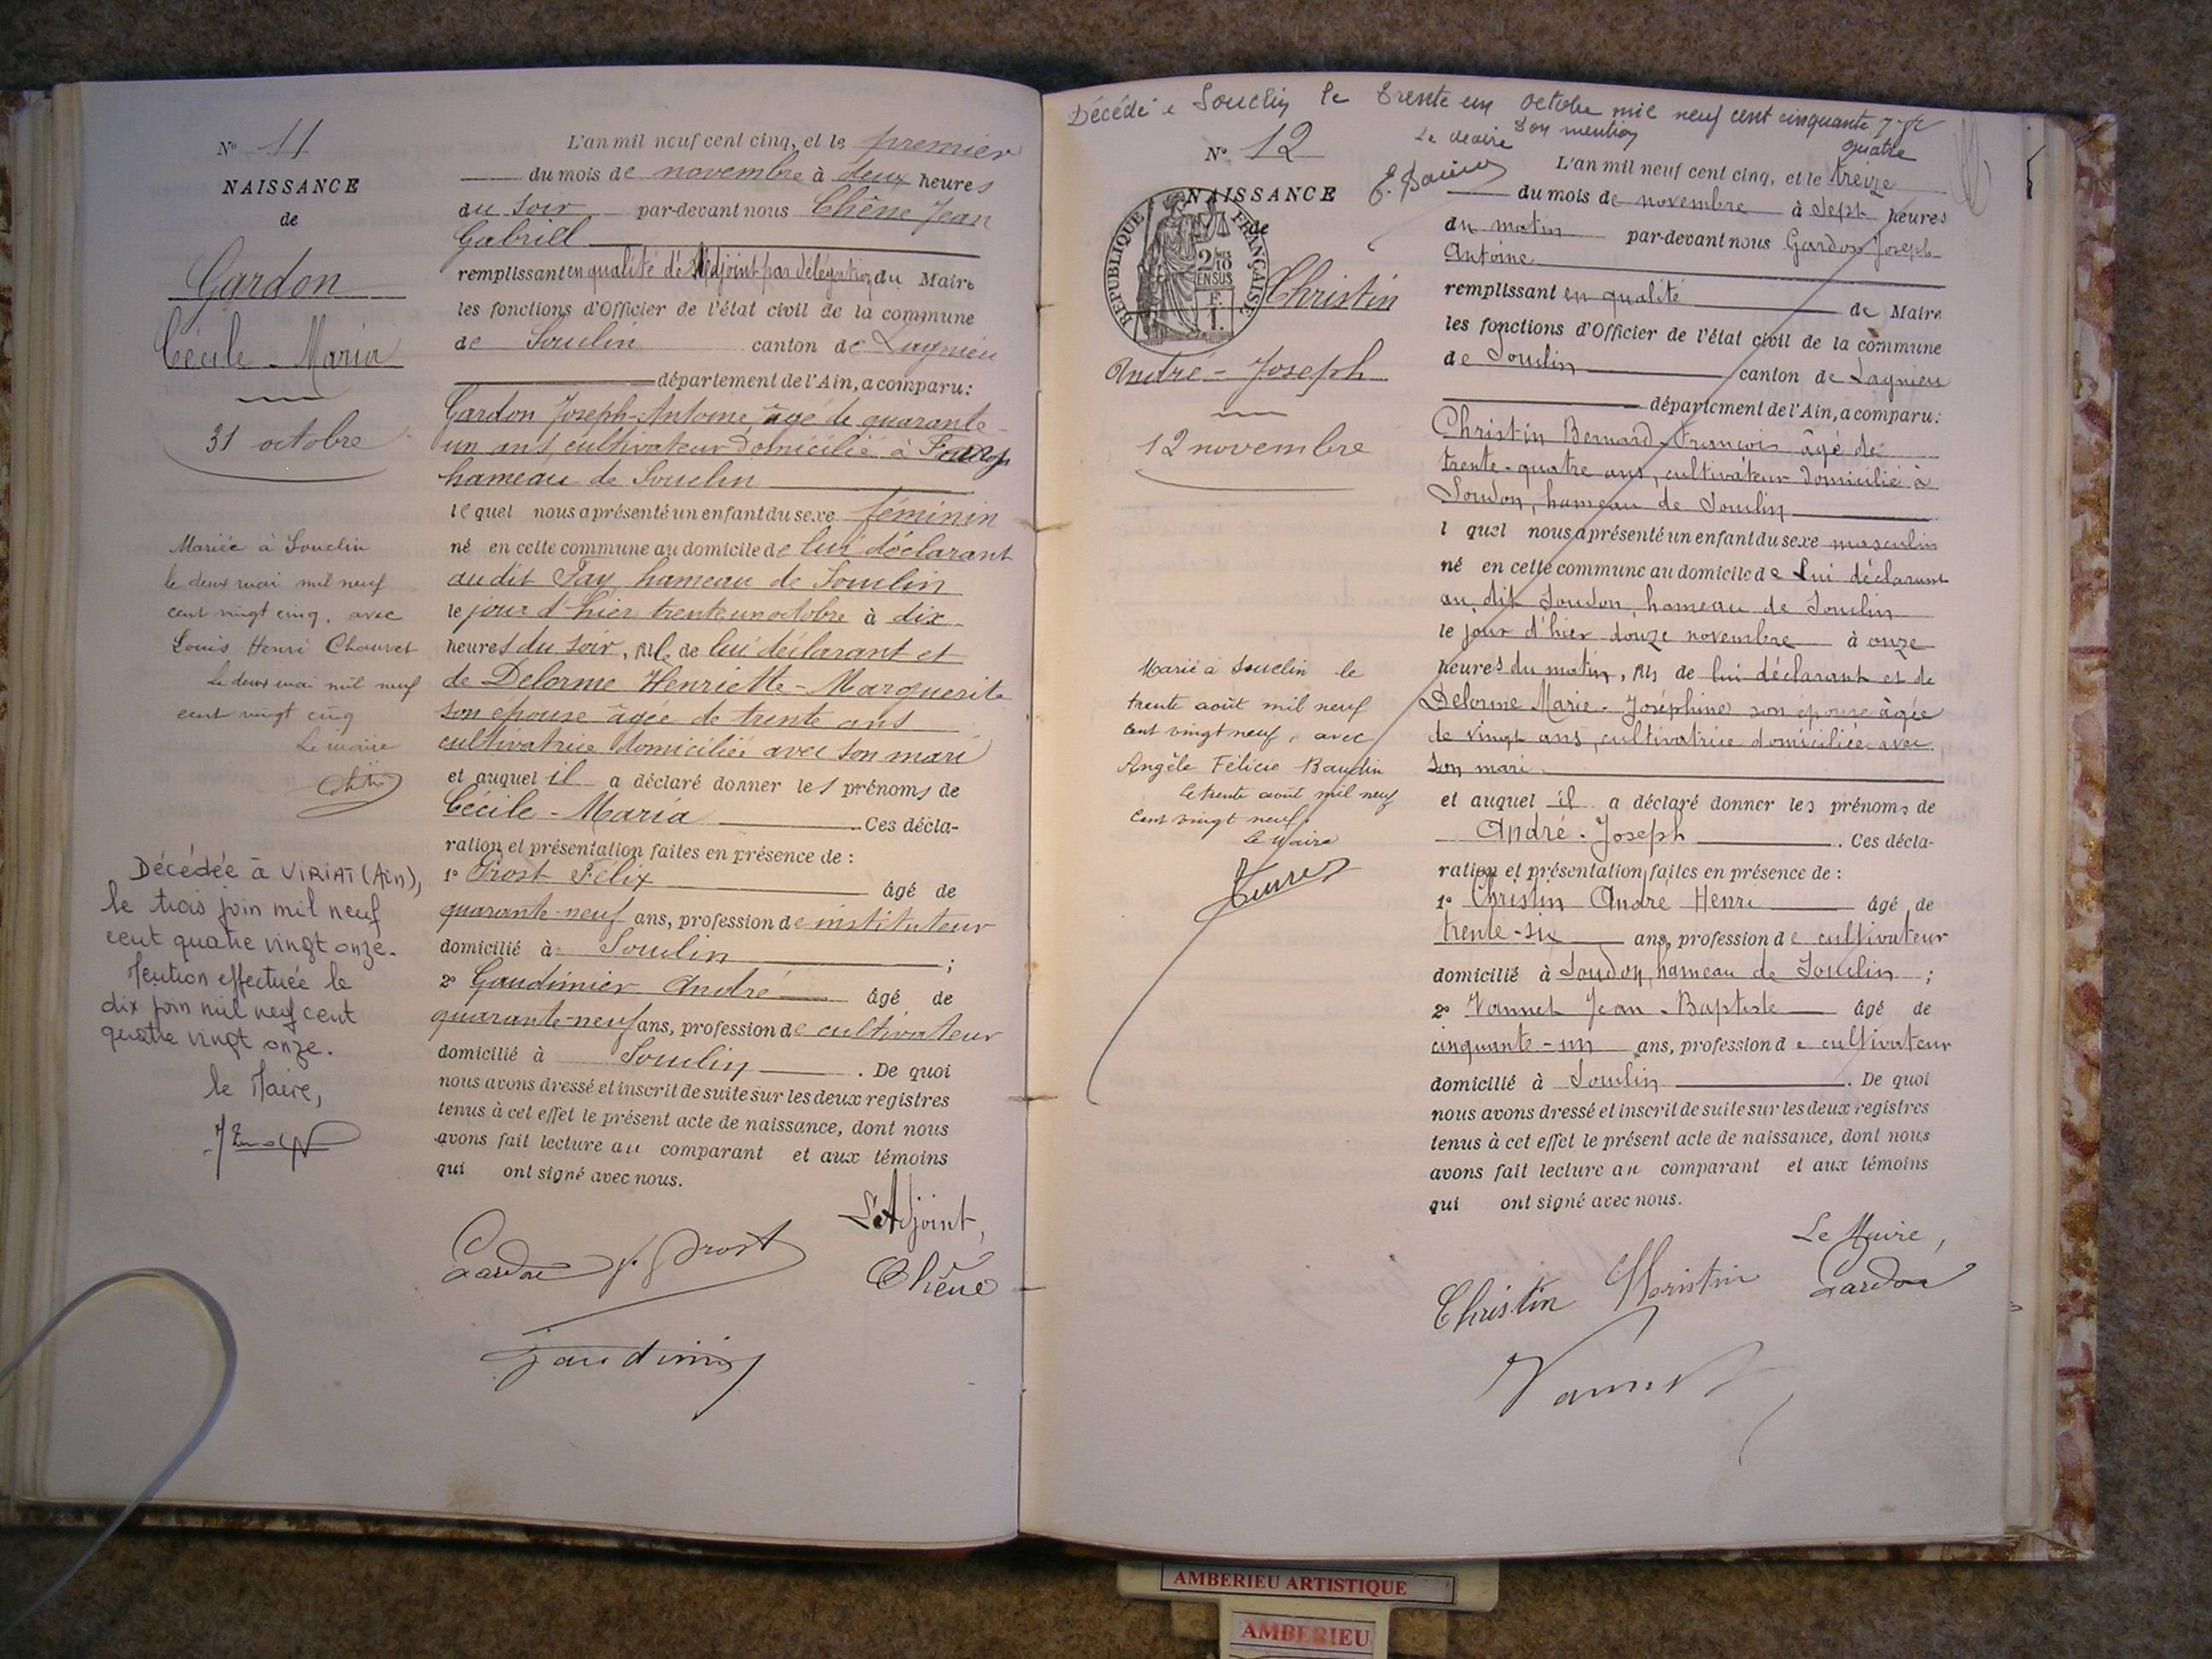 N° 11
NAISSANCE
de
Gardon
Cécile - Maria
31 octobre
Mariée à Souclin
le deux mai mil neuf
cent vingt cinq, avec
Louis Henri Chauvet
Le deux mai mil neuf
cent vingt cinq
Le maire
Décédée à VIRIAT (Ain),
le trois juin mil neuf
cent quatre vingt onze.
Mention effectuée le
dix juin mil neuf cent
quatre vingt onze.
le Maire,
L'an mil neuf cent cinq, et le premier
du mois de novembre à deux heures
du soir par-devant nous Chêne Jean
Gabriel
remplissant en qualité d'Adjoint par délégation du Maire
les fonctions d'Officier de l'état civil de la commune
de Souclin canton de Lagnieu
département de l'Ain, a comparu :
Gardon Joseph-Antoine, âgé de quarante-
un ans, cultivateur domicilié à Fay
hameau de Souclin
lequel nous a présenté un enfant du sexe féminin
né en cette commune au domicile de lui déclarant
au dit Fay, hameau de Souclin
le jour d'hier trente un octobre à dix
heures du soir, fille de lui déclarant et
de Delorme Henriette-Marguerite
son épouse âgée de trente ans
cultivatrice domiciliée avec son mari
et auquel il a déclaré donner les prénoms de
Cécile - Maria Ces décla-
ration et présentation faites en présence de :
1° Prost Félix âgé de
quarante-neuf ans, profession de instituteur
domicilié à Souclin ;
2° Gaudimier André âgé de
quarante-neuf ans, profession de cultivateur
domicilié à Souclin . De quoi
nous avons dressé et inscrit de suite sur les deux registres
tenus à cet effet le présent acte de naissance, dont nous
avons fait lecture au comparant et aux témoins
qui ont signé avec nous.
L'Adjoint,
Gardon F. Prost
Chêne
Gaudimier
Décédé à Souclin le trente un octobre mil neuf cent cinquante
quatre
Le Maire Don mention
N° 12
NAISSANCE
de
RÉPUBLIQUE FRANÇAISE
2/10
EN SUS
Christin
André - Joseph
12 novembre
Marié à Souclin le
trente août mil neuf
cent vingt neuf, avec
Angèle Félicie Baudin
Le trente août mil neuf
cent vingt neuf.
Le Maire
L'an mil neuf cent cinq, et le treize
du mois de novembre à sept heures
du matin par-devant nous Gardon Joseph
Antoine
remplissant en qualité de Maire
les fonctions d'Officier de l'état civil de la commune
de Souclin canton de Lagnieu
département de l'Ain, a comparu :
Christin Bernard-François âgé de
trente-quatre ans, cultivateur domicilié à
Soudon, hameau de Souclin
l quel nous a présenté un enfant du sexe masculin
né en cette commune au domicile de lui déclarant
au dit Soudon, hameau de Souclin
le jour d'hier douze novembre à onze
heures du matin, fils de lui déclarant et de
Delorme Marie-Joséphine son épouse âgée
de vingt ans, cultivatrice domiciliée avec
son mari
et auquel il a déclaré donner les prénoms de
André - Joseph . Ces décla-
ration et présentation faites en présence de :
1° Christin André Henri âgé de
trente-six ans, profession de cultivateur
domicilié à Soudon, hameau de Souclin ;
2° Vannet Jean-Baptiste âgé de
cinquante-un ans, profession de cultivateur
domicilié à Souclin . De quoi
nous avons dressé et inscrit de suite sur les deux registres
tenus à cet effet le présent acte de naissance, dont nous
avons fait lecture au comparant et aux témoins
qui ont signé avec nous.
Le Maire,
Christin Christin Gardon
Vannet
AMBERIEU ARTISTIQUE
AMBERIEU